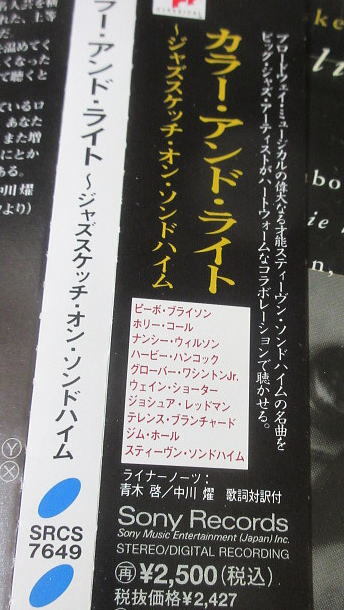 ブロードウェイ・ミュージカルの偉大なる才能スティーヴン・ソンドハイムの名曲を
ビッグ・ジャズ・アーティストがハートウォームなコラボレーションで聴かせる。
カラー・アンド・ライト
〜ジャズスケッチ・オン・ソンドハイム
ピーボ・ブライソン
ホリー・コール
ナンシー・ウィルソン
ハービー・ハンコック
グローバー・ワシントンJr.
ウェイン・ショーター
ジョシュア・レッドマン
テレンス・ブランチャード
ジム・ホール
スティーヴン・ソンドハイム
ライナーノーツ：
青木 啓／中川 燿 歌詞対訳付
Sony Records
Sony Music Entertainment (Japan) Inc.
STEREO/DIGITAL RECORDING
再 ¥2,500(税込)
税抜価格¥2,427
ラー・アンド・ライト 〜ジャズスケッチ・オン・ソンドハイム
SRCS
7649
Y
X
れた、上等
温めてく
くなった
て聴くと
ているロ
あなた
また増
にとか
ある。
中川 燿
より）